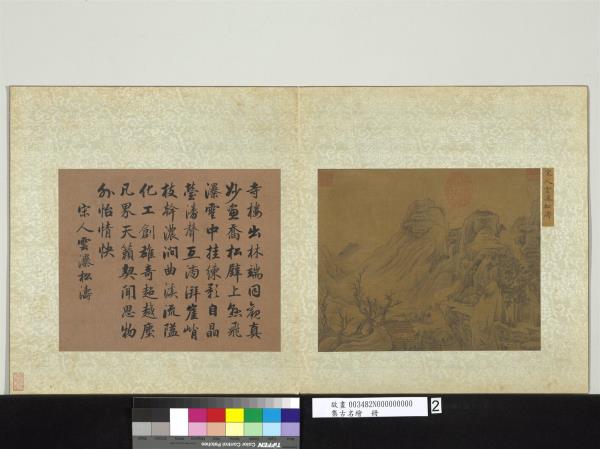 寺樓出林端回觀真
妙畫喬松壁上參飛
瀑雲中挂練影自晶
瑩濤聲互湃崖峭
枝幹濃澗曲溪流隘
化工創雄奇超越塵
凡界天籟契聞思物
外怡情快
宋人雲瀑松濤
宋人雲瀑松濤
故畫 003482N000000000
集古名繪 冊
2
TIFFEN Color Control Patches